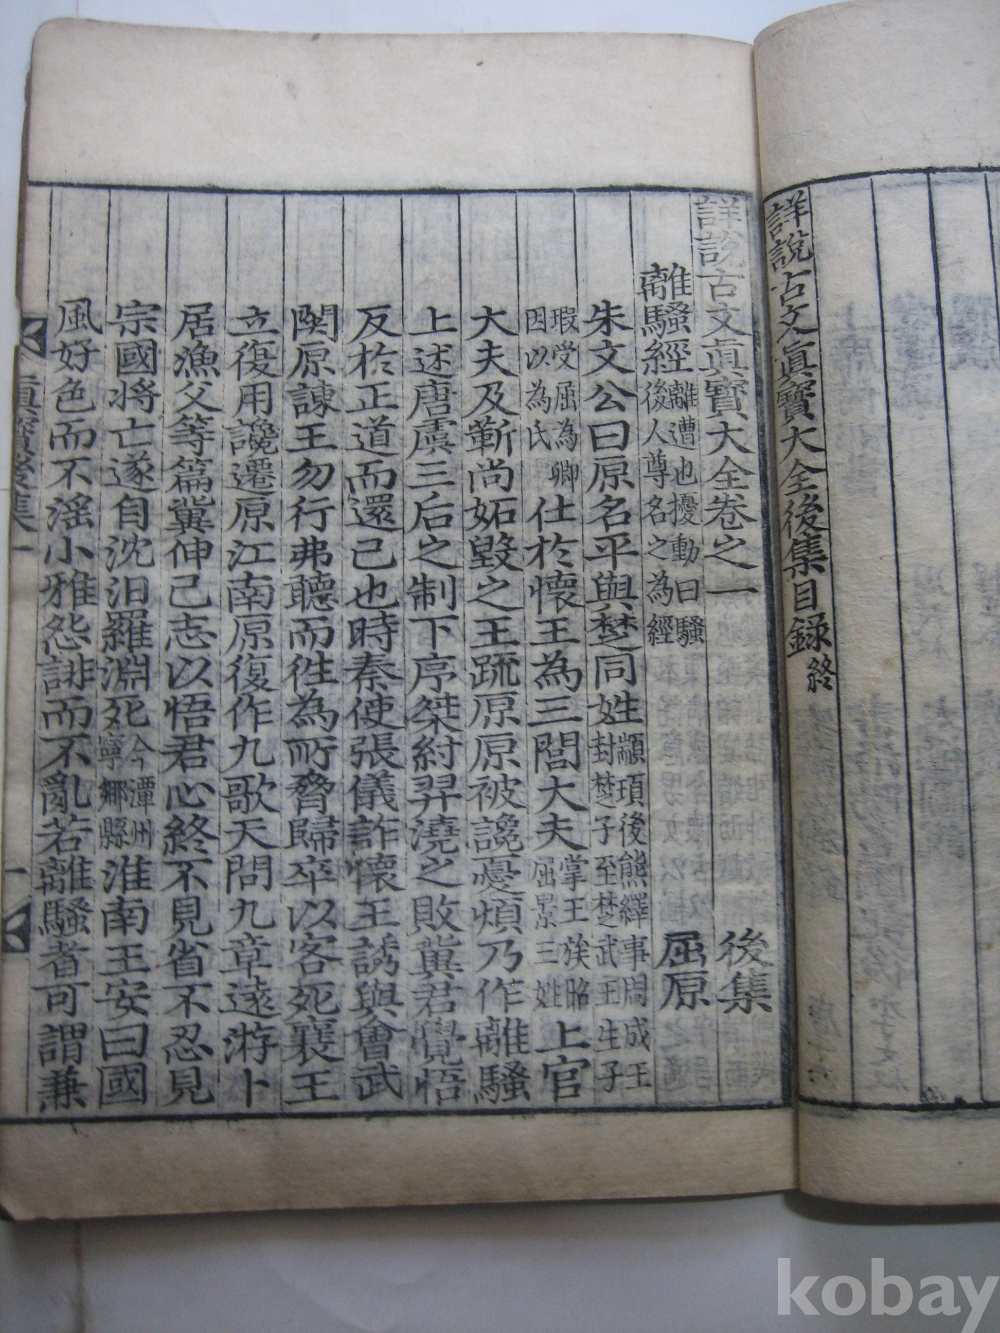 詳說古文眞寶大全後集目錄 終
詳說古文眞寶大全卷之一 後集
離騷經 離遭也擾動曰騷後人尊名之為經 屈原
朱文公曰原名平與楚同姓 顓頊後熊繹事周成王封楚子至楚武王生子
瑕受屈為卿因以為氏 仕於懷王為三閭大夫 掌王族昭屈景三姓 上官
大夫及靳尚妬毀之王疏原原被讒憂煩乃作離騷
上述唐虞三后之制下序桀紂羿澆之敗冀君覺悟
反於正道而還己也時秦使張儀詐懷王誘與會武
關原諫王勿行弗聽而徃為所脅歸卒以客死襄王
立復用讒遷原江南原復作九歌天問九章遠游卜
居漁父等篇冀伸己志以悟君心終不見省不忍見
宗國將亡遂自沈汨羅淵死 今潭州寧鄉縣 淮南王安曰國
風好色而不淫小雅怨誹而不亂若離騷者可謂兼
眞寶後集一
一
kobay